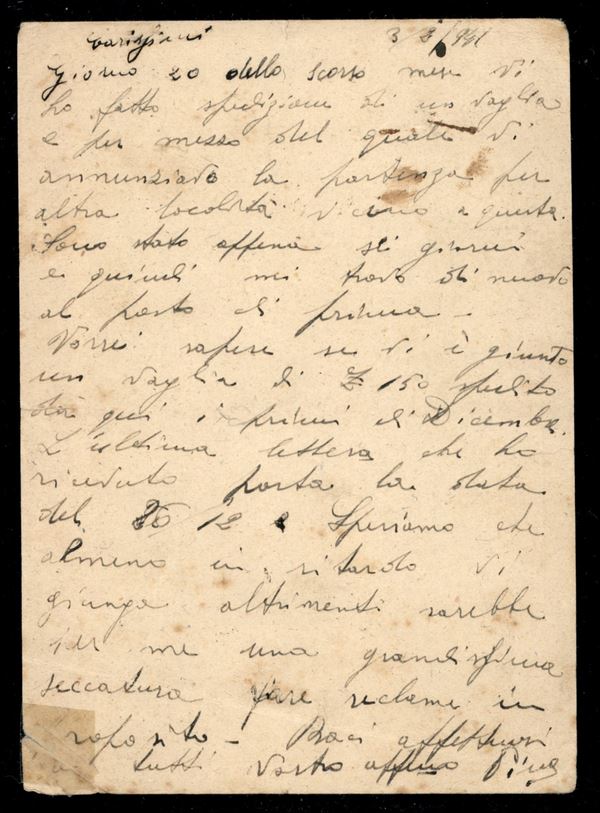 Carissimi 3/2/941
Giorno 20 dello scorso mese vi
ho fatto spedizione di un vaglia
e per mezzo del quale vi
annunziavo la partenza per
altra località vicino a questa.
Sono stato appena sei giorni
e quindi mi trovo di nuovo
al posto di prima -
Vorrei sapere se vi è giunto
un vaglia di £ 150 spedito
da qui i primi di Dicembre.
L'ultima lettera che ho
ricevuto porta la data
del 26/12 e Speriamo che
almeno in ritardo vi
giunga altrimenti sarebbe
per me una grandissima
seccatura fare reclami in
proposito - Baci affettuosi
a tutti Vostro affmo